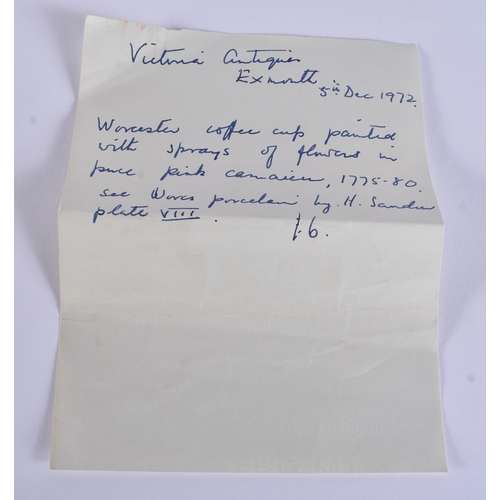 Victoria Antiques
Exmouth
5th Dec 1972.
Worcester coffee cup painted
with sprays of flowers in
puce pink camaieu, 1775-80.
see Worcs porcelain by H. Sandon
plate VIII. 16.